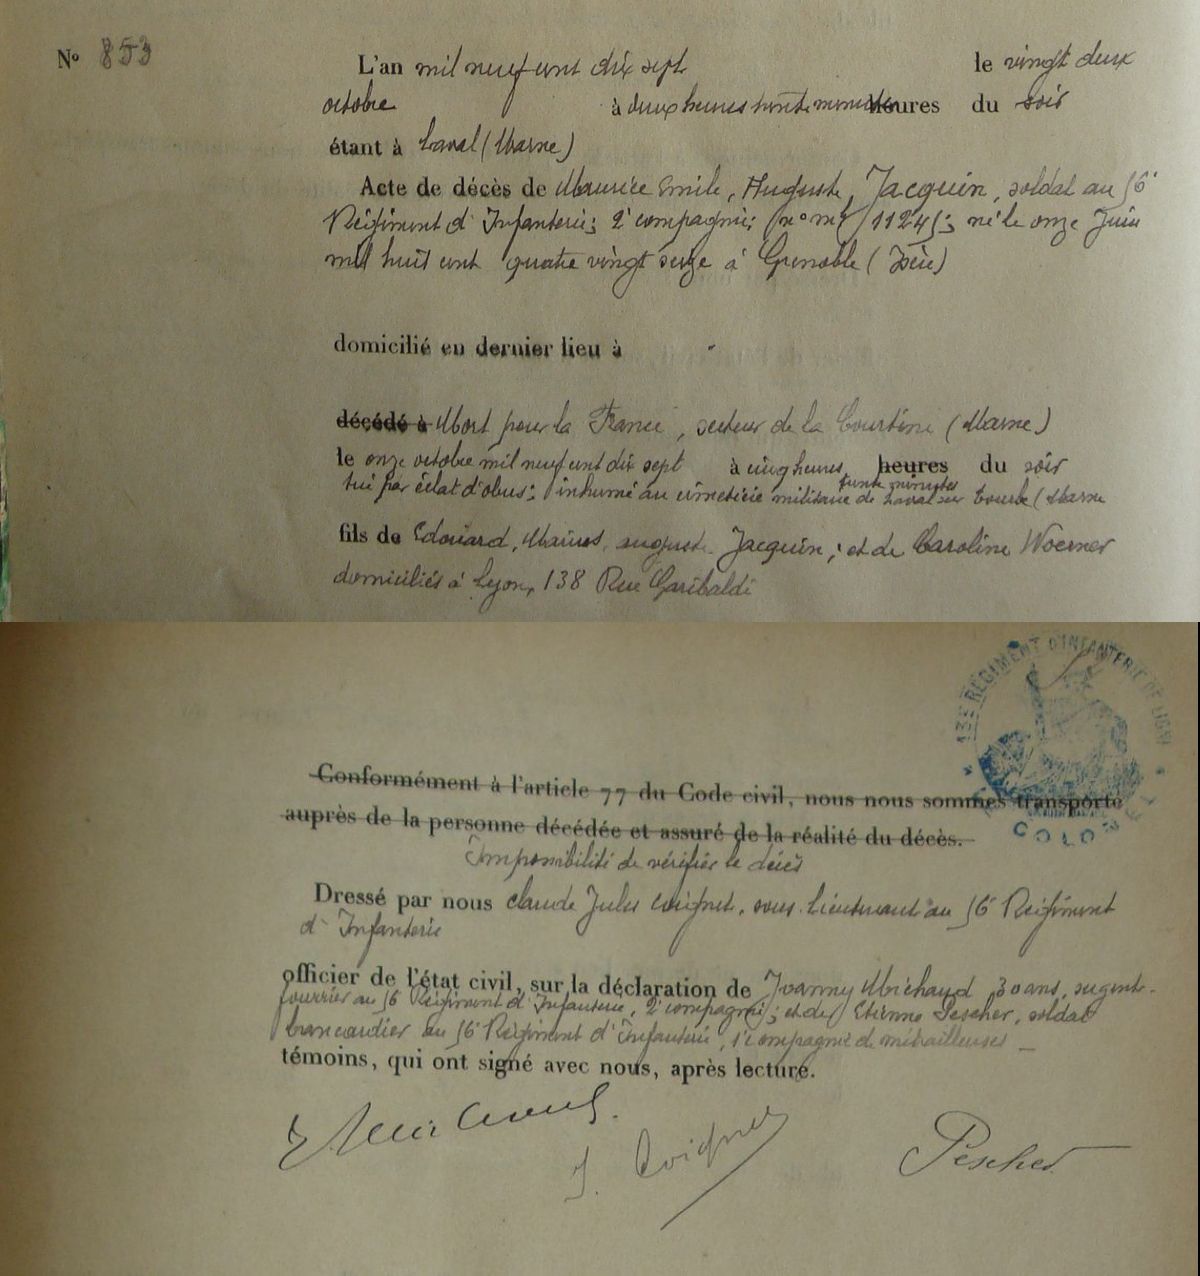 N° 853
L'an mil neuf cent dix sept le vingt deux
octobre à deux heures trente minutes heures du soir
étant à Laval (Marne)
Acte de décès de Maurice Emile, Auguste, Jacquin, soldat au 56e
Régiment d'Infanterie; 2e compagnie; (n° mle 11245); né le onze Juin
mil huit cent quatre vingt seize à Grenoble (Isère)
domicilié en dernier lieu à
décédé à Mort pour la France, secteur de la Courtine (Marne)
le onze octobre mil neuf cent dix sept à cinq heures heures du soir
trente minutes
tué par éclat d'obus; inhumé au cimetière militaire de Laval sur Tourbe (Marne
fils de Edouard, Marius, auguste Jacquin; et de Caroline Woerner
domiciliés à Lyon, 138 Rue Garibaldi
RÉGIMENT D'INFANTERIE DE LIGNE
Conformément à l'article 77 du Code civil, nous nous sommes transporté
auprès de la personne décédée et assuré de la réalité du décès.
Impossibilité de vérifier le décès
Dressé par nous claude Jules Coignet, sous-Lieutenant au 56e Régiment
d'Infanterie
officier de l'état civil, sur la déclaration de Joanny Michaud 30 ans, sergent-
fourrier au 56e Régiment d'Infanterie, 2e compagnie; et de Etienne Pescher, soldat
brancardier au 56e Régiment d'Infanterie, 1e compagnie de mitrailleuses —
témoins, qui ont signé avec nous, après lecture.
J. Coignet
Pescher